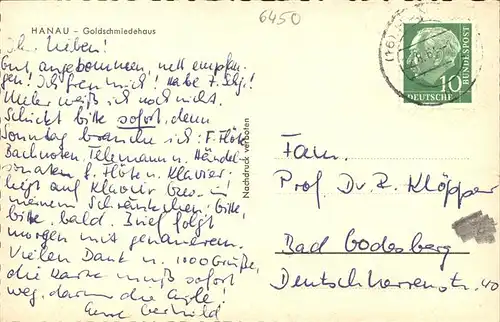 6450
HANAU – Goldschmiedehaus
Ihr Lieben!
Gut angekommen, nett empfan-
gen! Ich freu mich! Habe 7. Schj.!
Mehr weiß ich noch nicht.
Schickt bitte sofort, denn
Sonntag brauche ich: F. Flöte
Bachnoten, Telemann u. Händel-
sonaten f. Flöte u. Klavier.
liegt auf Klavier bzw. in
meinem Schränkchen. Bitte,
bitte bald. Brief folgt
morgen mit genauerem.
Vielen Dank u. 1000 Grüße,
die Karte muß sofort
weg, darum die Eile!
Eure Gerhild
Nachdruck verboten
(16)
10
DEUTSCHE
BUNDESPOST
Fam.
Prof Dr. R. Klöpper
Bad Godesberg
Deutschherrenstr. 40